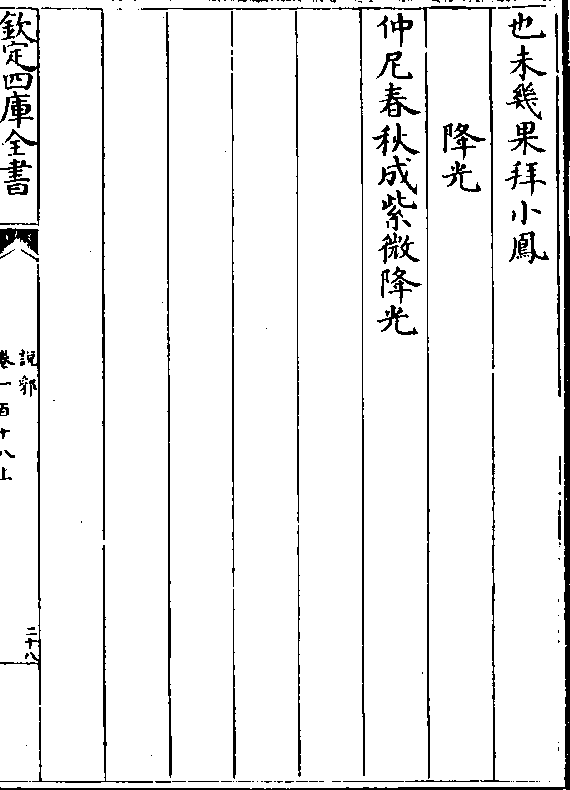 也未幾果拜小鳳
降光
仲尼春秋成紫微降光
欽定四庫全書
說郛
卷一百十八上
二十八